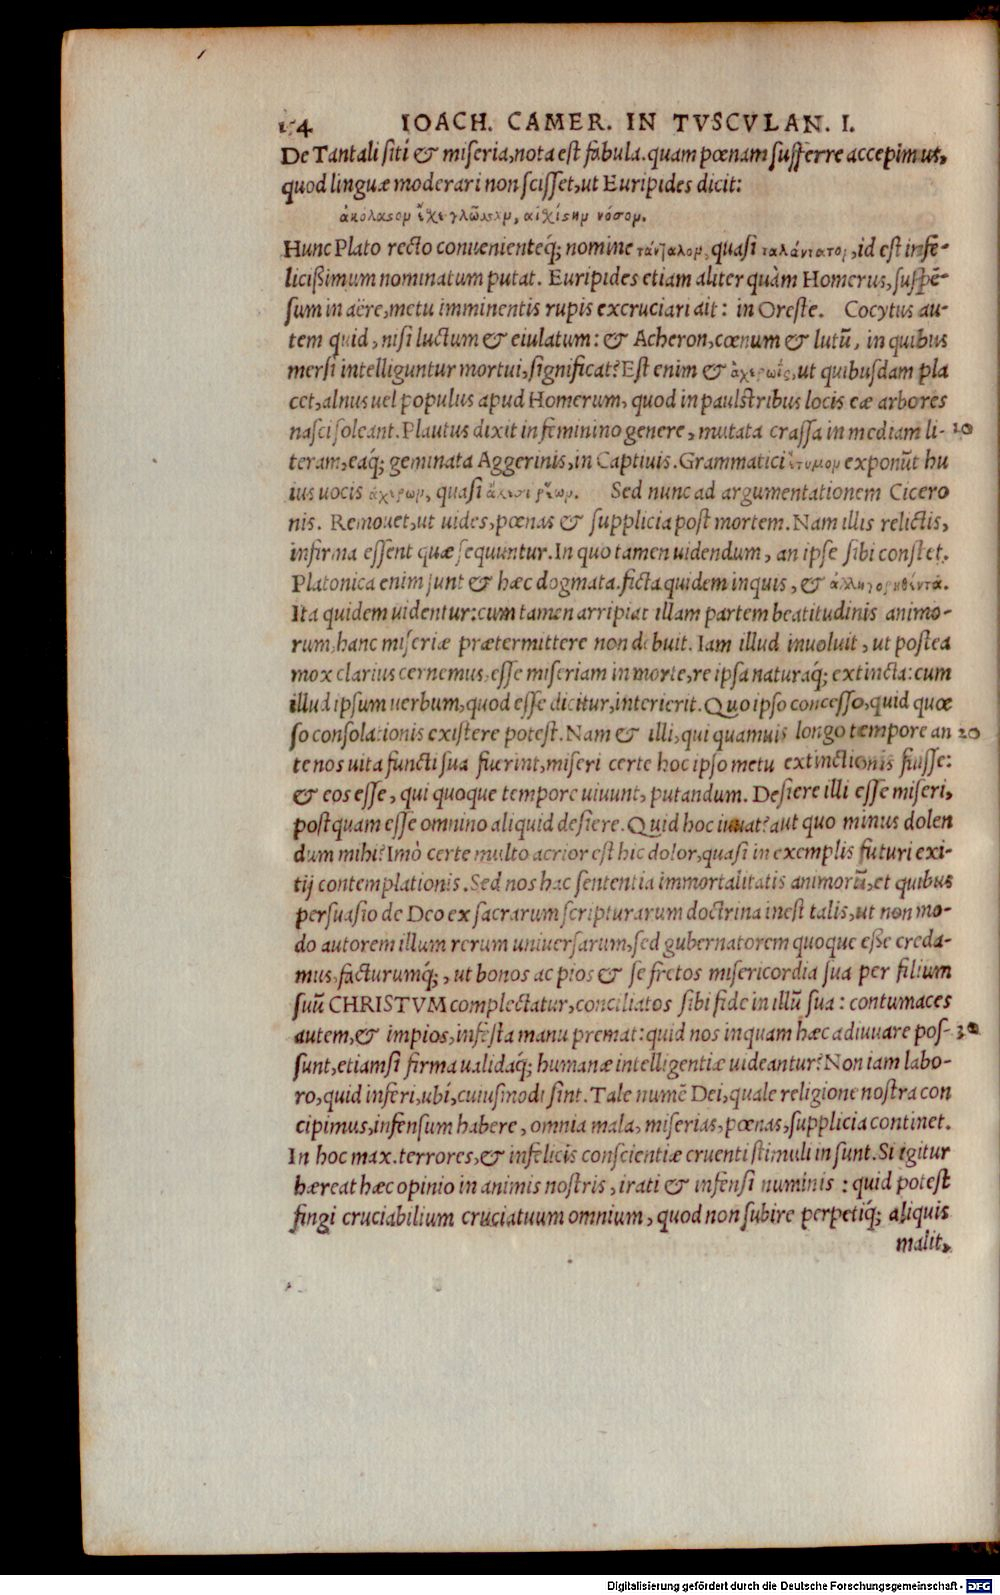 154 IOACH. CAMER. IN TVSCVLAN. I.
De Tantali siti & miseria, nota est fabula. quam pœnam sufferre accepimus,
quod linguæ moderari non scisset, ut Euripides dicit:
ἀκόλασομ ἔχε γλῶσσαμ, αἰχίσημ νόσομ.
Hunc Plato recto conuenienteq́; nomine τάνταλομ, quasi ταλάντατομ, id est infe-
licißimum nominatum putat. Euripides etiam aliter quàm Homerus, suspẽ-
sum in aëre, metu imminentis rupis excruciari ait: in Oreste. Cocytus au-
tem quid, nisi luctum & eiulatum: & Acheron, cœnum & lutũ, in quibus
mersi intelliguntur mortui, significat? Est enim & ἀχερωίς, ut quibusdam pla
cet, alnus uel populus apud Homerum, quod in paulstribus locis eæ arbores
nasci soleant. Plautus dixit in feminino genere, mutata crassa in mediam li- 10
teram, eaq́; geminata Aggerinis, in Captiuis. Grammatici ἔτυμομ exponũt hu
ius uocis ἀχέρωμ, quasi ἄχεσι ῥέωμ. Sed nunc ad argumentationem Cicero
nis. Remouet, ut uides, pœnas & supplicia post mortem. Nam illis relictis,
infirma essent quæ sequuntur. In quo tamen uidendum, an ipse sibi constet.
Platonica enim sunt & hæc dogmata. ficta quidem inquis, & ἀλληγορηθέντα.
Ita quidem uidentur: cum tamen arripiat illam partem beatitudinis animo-
rum, hanc miseriæ prætermittere non debuit. Iam illud inuoluit, ut postea
mox clarius cernemus, esse miseriam in morte, re ipsa naturaq́; extincta: cum
illud ipsum uerbum, quod esse dicitur, interierit. Quo ipso concesso, quid quæ
so consolationis existere potest. Nam & illi, qui quamuis longo tempore an 20
te nos uita functi sua fuerint, miseri certe hoc ipso metu extinctionis fuisse:
& eos esse, qui quoque tempore uiuunt, putandum. Desiere illi esse miseri,
postquam esse omnino aliquid desiere. Quid hoc iuuat? aut quo minus dolen
dum mihi? Imò certe multo acrior est hic dolor, quasi in exemplis futuri exi-
tij contemplationis. Sed nos hac sententia immortalitatis animorũ, et quibus
persuasio de Deo ex sacrarum scripturarum doctrina inest talis, ut non mo-
do autorem illum rerum uniuersarum, sed gubernatorem quoque eße creda-
mus, facturumq́;, ut bonos ac pios & se fretos misericordia sua per filium
suũ CHRISTVM complectatur, conciliatos sibi fide in illũ sua: contumaces
autem, & impios, infesta manu premat: quid nos inquam hæc adiuuare pos- 30
sunt, etiamsi firma ualidaq́; humanæ intelligentiæ uideantur? Non iam labo-
ro, quid inferi, ubi, cuiusmodi sint. Tale numẽ Dei, quale religione nostra con
cipimus, infensum habere, omnia mala, miserias, pœnas, supplicia continet.
In hoc max. terrores, & infelicis conscientiæ cruenti stimuli insunt. Si igitur
hæreat hæc opinio in animis nostris, irati & infensi numinis: quid potest
fingi cruciabilium cruciatuum omnium, quod non subire perpetiq́; aliquis
malit,
Digitalisierung gefördert durch die Deutsche Forschungsgemeinschaft - DFG